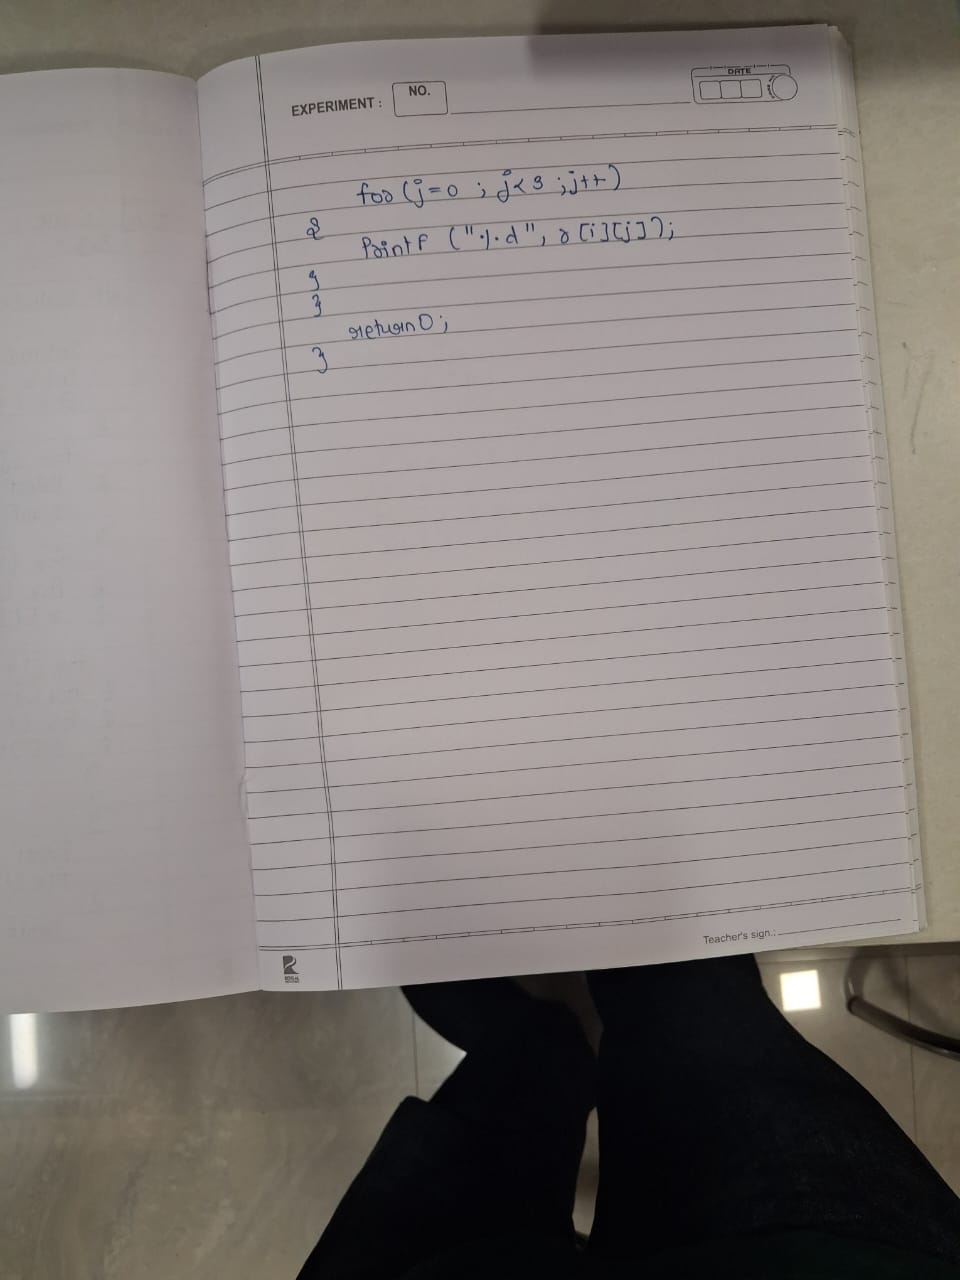 EXPERIMENT : NO.
DATE
for (j=0 ; j<3 ;j++)
{
Printf ("%d", r[i][j]);
}
}
return 0;
}
Teacher's sign.: